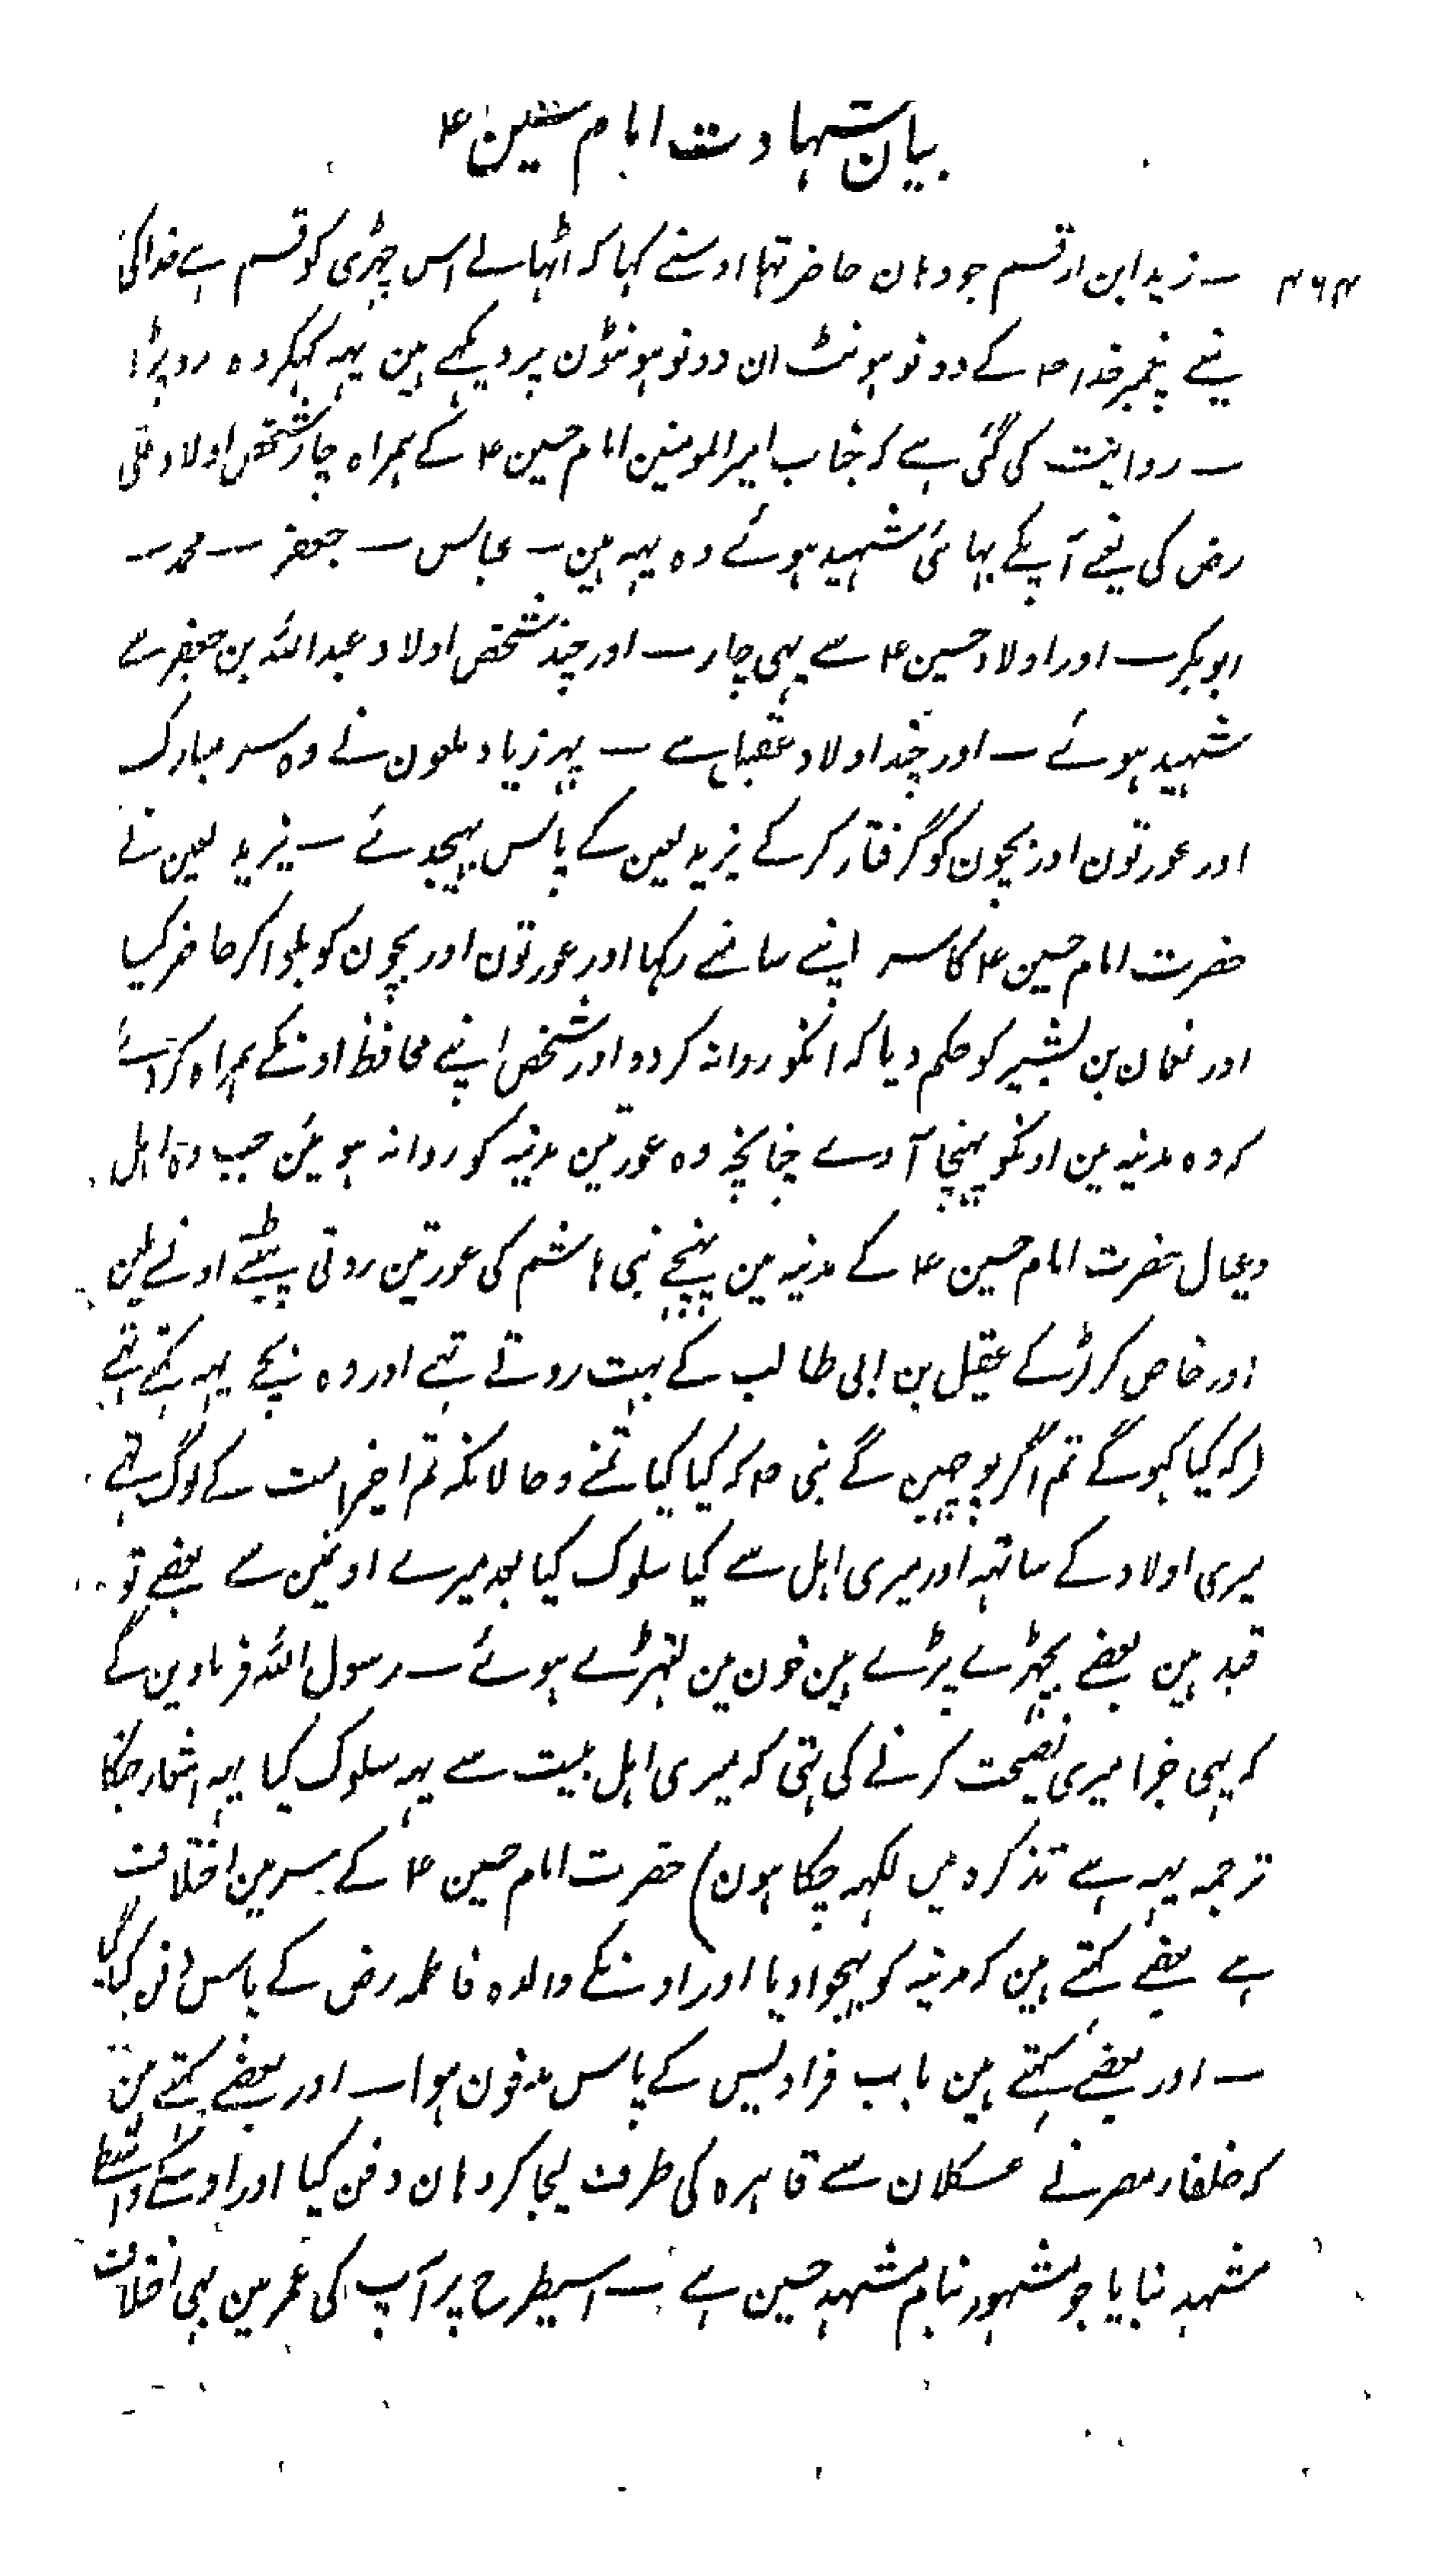 بیان شہادت امام حسین ؑ
۴۶۴ ۔ زید ابن ارقم جو وہان حاضر تہا اوسنے کہا کہ اٹہالے اس چہڑی کو قسم ہے خدا کی
مینے پیغمبر خدا ؐ کے دونو ہونٹ ان دونو ہونٹون پر دیکہے ہین یہہ کہکر وہ رو پڑا
۔ روایت کی گئی ہے کہ جناب امیر المومنین امام حسین ؑ کے ہمراہ چار شخص اولاد علی
رض کی یعنے آپکے بہائی شہید ہوئے وہ یہہ ہین ۔ عباس ۔ جعفر ۔ محمد ۔
ابوبکر ۔ اور اولاد حسین ؑ سے بہی چار ۔ اور چند شخص اولاد عبد اللہ بن جعفر سے
شہید ہوئے ۔ اور چند اولاد سے ۔ پہر زیاد ملعون نے وہ سر مبارک
اور عورتون اور بچون کو گرفتار کرکے یزید لعین کے پاس بہیجدئے ۔ یزید لعین نے
حضرت امام حسین ؑ کا سر اپنے سامنے رکہا اور عورتون اور بچون کو بلوا کر حاضر کیا
اور نعمان بن بشیر کو حکم دیا کہ انکو روانہ کردو اور شخص اپنے محافظ اونکے ہمراہ کردئے
کہ وہ مدینہ مین اونکو پہنچا آوے چنانچہ وہ عورتین مدینہ کو روانہ ہوئین جب وہ اہل
وعیال حضرت امام حسین ؑ کے مدینہ مین پہنچے بنی ہاشم کی عورتین روتی پیٹتے اونسے ملین
اور خاص کر لڑکے عقیل بن ابی طالب کے بہت روتے تہے اور وہ بچے یہہ کہتے تہے
(کہ کیا کہوگے تم اگر پوچہین گے نبی ؐ کہ کیا کیا تمنے وحالانکہ تم اخیر امت کے لوگ تہے
میری اولاد کے ساتہہ اور میری اہل سے کیا سلوک کیا بعد میرے اونمین سے بعضے تو
قید ہین بعضے پچہڑے پڑے ہین خون مین لتہڑے ہوئے ۔ رسول اللہ فرماوین گے
کہ یہی جزا میری نصیحت کرنے کی تہی کہ میری اہل بیت سے یہہ سلوک کیا یہہ اشعار جنکا
ترجمہ یہہ ہے تذکرہ میں لکہہ چکا ہون) حضرت امام حسین ؑ کے سر مین اختلاف
ہے بعضے کہتے ہین کہ مدینہ کو بہیجوا دیا اور اونکے والدہ فاطمہ رض کے پاس دفن کیا گیا
۔ اور بعضے کہتے ہین باب فرادیس کے پاس مدفون ہوا ۔ اور بعضے کہتے ہین
کہ خلفاء مصر نے عسکلان سے قاہرہ کی طرف لیجا کر وہان دفن کیا اور اوسکے واسطے
مشہد بنایا جو مشہور بنام مشہد حسین ہے ۔ اسیطرح پر آپ کی عمر مین بہی اختلاف